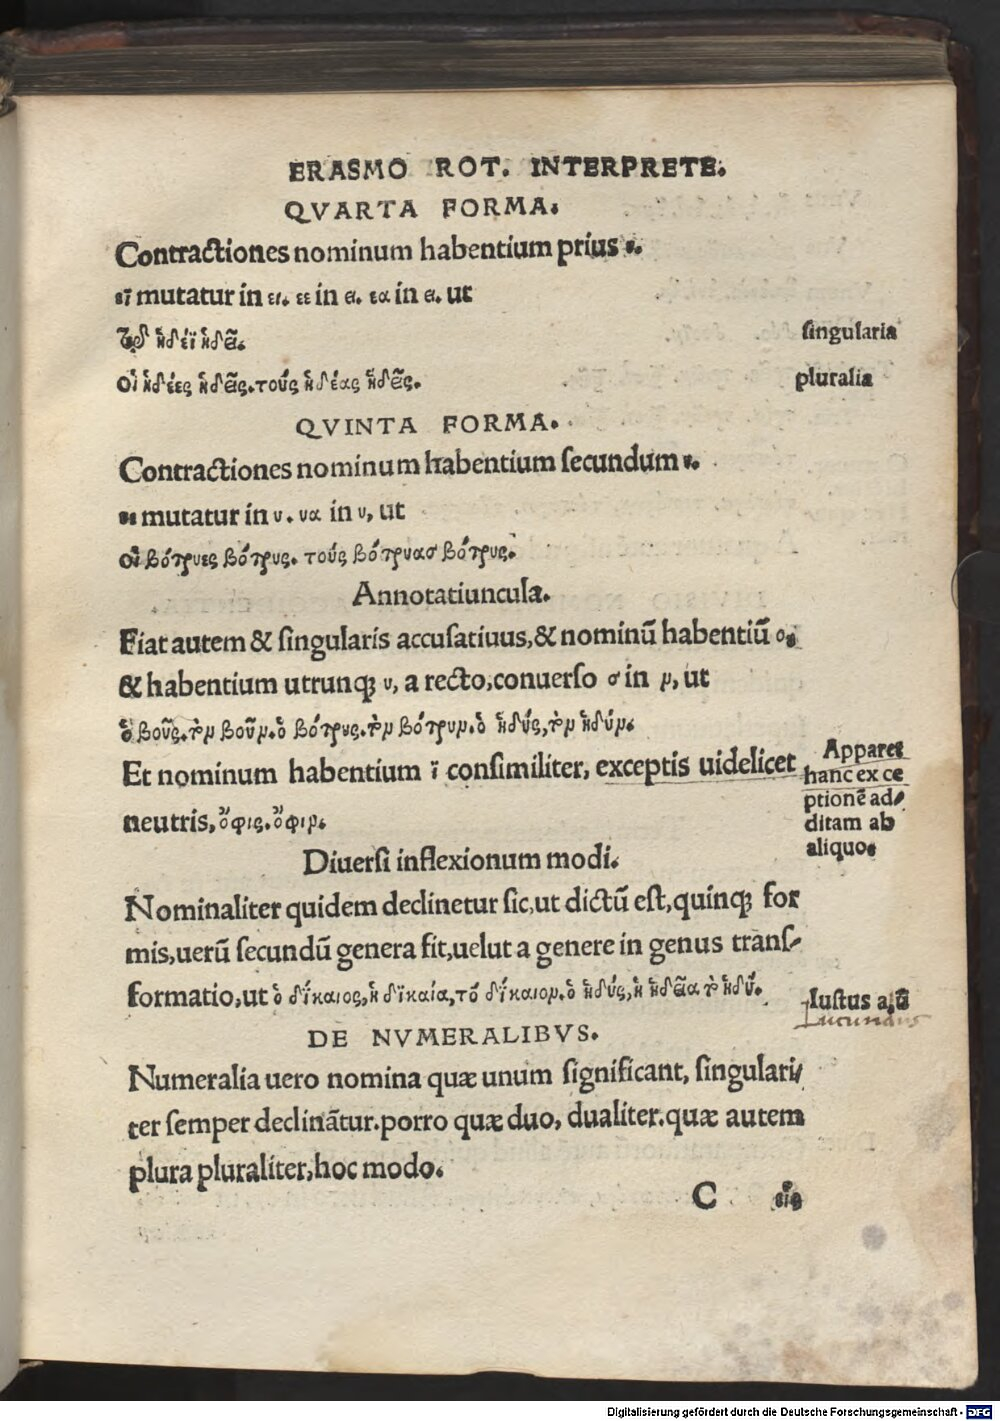 ERASMO ROT. INTERPRETE.
QVARTA FORMA.
Contractiones nominum habentium prius ε.
εϊ mutatur in ει. εε in ει. εα in ει. ut
ἡδέϊ ἡδεῖ.
οἱ ἡδέες ἡδεῖς. τοὺς ἡδέας ἡδεῖς.
singularia
pluralia
QVINTA FORMA.
Contractiones nominum habentium secundum υ.
υε mutatur in υ. υα in υ, ut
οἱ βότρυες βότρυς. τοὺς βότρυασ βότρυς.
Annotatiuncula.
Fiat autem & singularis accusatiuus, & nominū habentiū ου
& habentium utrunqꝫ υ, a recto, conuerso σ in ν, ut
ὁ βοῦς. τὸν βοῦν. ὁ βότρυς. τὸν βότρυν. ὁ ἡδύς, τὸν ἡδύν.
Et nominum habentium ϊ consimiliter, exceptis uidelicet
neutris, ὄφις. ὄφιν.
Apparet
hanc exce
ptionē ad/
ditam ab
aliquo.
Diuersi inflexionum modi.
Nominaliter quidem declinetur sic, ut dictū est, quinqꝫ for
mis, uerū secundū genera fit, uelut a genere in genus trans/
formatio, ut ὁ δίκαιος, ἡ δικαία, τό δίκαιον. ὁ ἡδύς, ἡ ἡδεῖα τὸ ἡδύ.
Iustus a, ū
Iucundus
DE NVMERALIBVS.
Numeralia uero nomina quæ unum significant, singulari/
ter semper declinātur. porro quæ duo, dualiter. quæ autem
plura pluraliter, hoc modo.
C εἷς